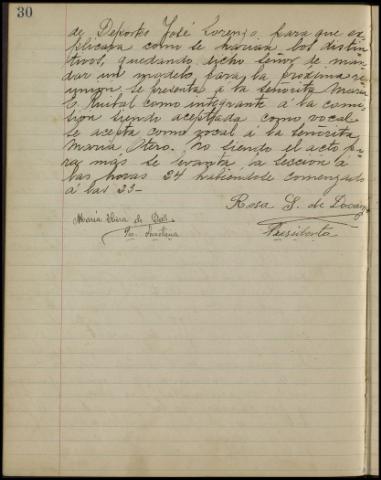 30
de Deportes José Lorenzo para que ex-
plicara como se harian los distin-
tivos, quedando dicho señor de man-
dar un modelo para la proxima re-
union se presenta á la señorita Maria
E. Ruibal como integrante á la comi-
sion siendo aceptada como vocal
se acepta como vocal á la señorita
Maria Otero. No siendo el acto pa-
ra más se levanta la sección á
las horas 24 habiendose comenzado
á las 23-
Rosa S. de
Maria Elvira de
Presidenta
Pro.